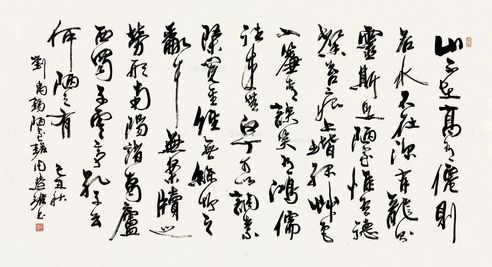 山不在高有僊則
名水不在深有龍則
靈斯是陋室惟吾德
馨苔痕上階綠草色
入簾青談笑有鴻儒
往來無白丁可以調素
琴閱金經無絲竹之
亂耳無案牘之
勞形南陽諸葛廬
西蜀子雲亭孔子云
何陋之有 丑秋
劉禹錫陋室銘 書